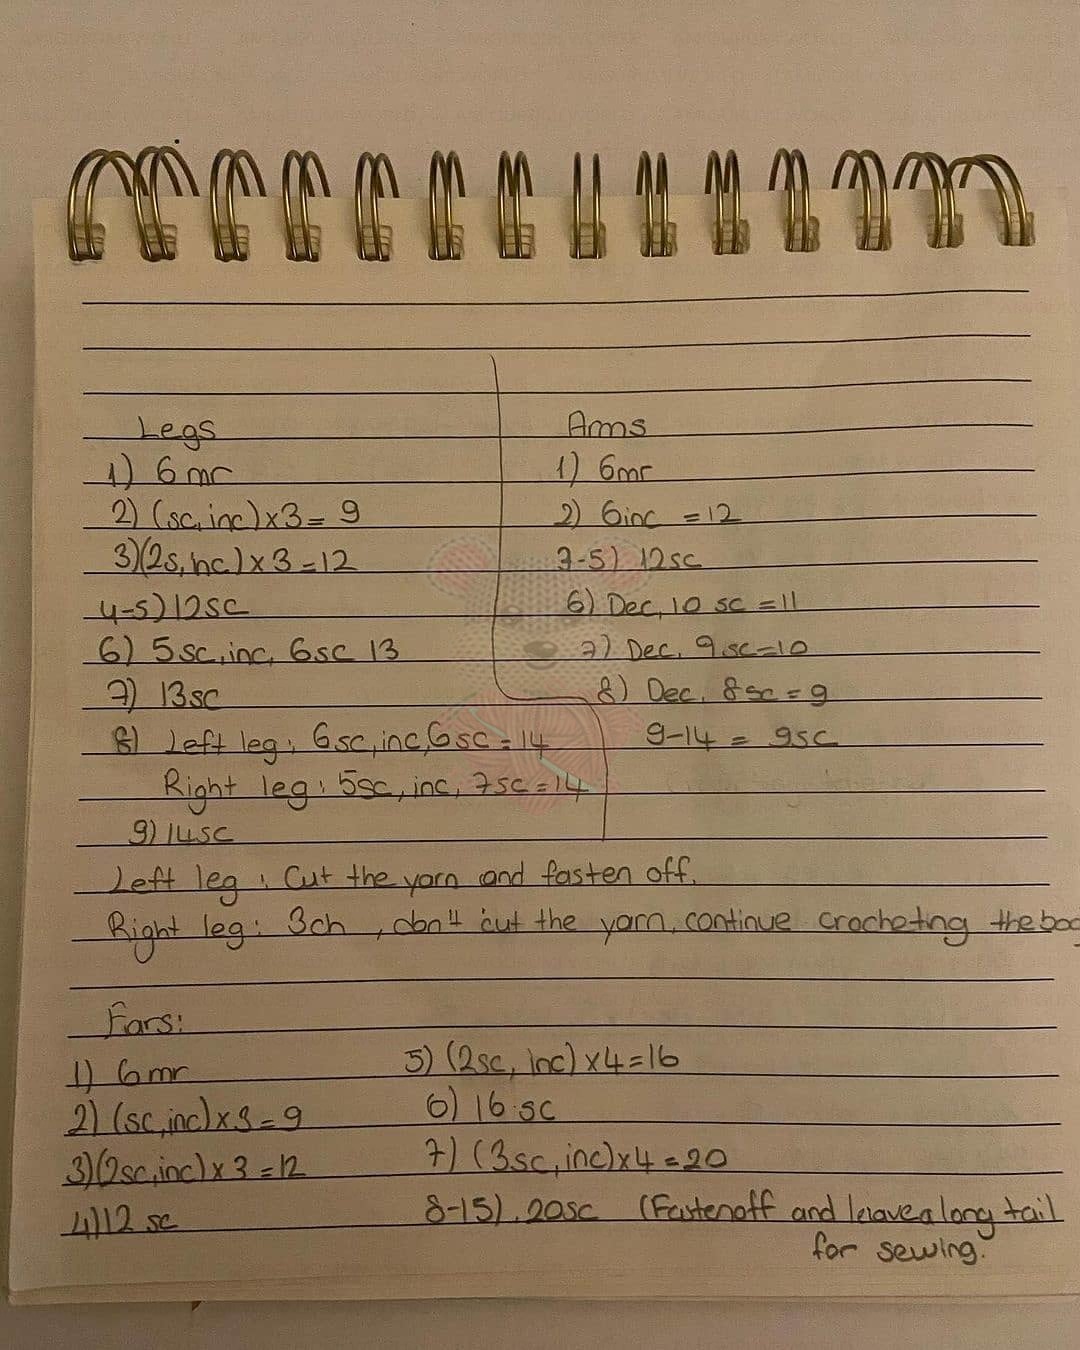 Legs
1) 6 mr
2) (sc, inc) x3 = 9
3) (2s, nc) x 3 = 12
4-5) 12sc
6) 5sc, inc, 6sc 13
7) 13sc
8) Left leg: 6sc, inc, 6sc = 14
Right leg: 5sc, inc, 7sc = 14
9) 14sc
Arms
1) 6mr
2) 6inc = 12
3-5) 12sc
6) Dec, 10 sc = 11
7) Dec, 9sc = 10
8) Dec, 8sc = 9
9-14 = 9sc
Left leg: Cut the yarn and fasten off.
Right leg: 3ch, don't cut the yarn, continue crocheting the
Ears:
1) 6mr
2) (sc, inc) x 3 = 9
3) (2sc, inc) x 3 = 12
4) 12 sc
5) (2sc, inc) x4 = 16
6) 16 sc
7) (3sc, inc) x4 = 20
8-15). 20sc (Fasten off and leave a long tail
for sewing.